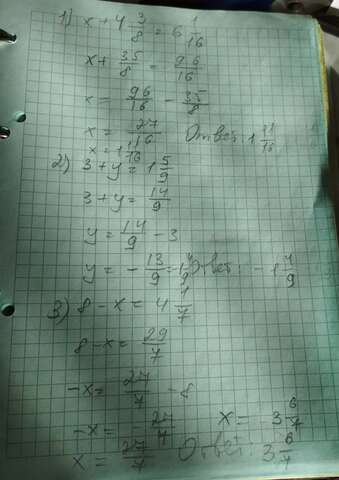 1) x + 4 3/8 = 6 1/16
x + 35/8 = 96/16
x = 96/16 - 35/8
x = 27/16 Ответ: 1 11/16
x = 1 11/16
2) 3 + y = 1 5/9
3 + y = 14/9
y = 14/9 - 3
y = - 13/9 = -1 4/9 Ответ: - 1 4/9
3) 8 - x = 4 1/7
8 - x = 29/7
- x = 27/7 - 8
- x = - 27/7 x = 3 6/7
x = 27/7 Ответ: 3 6/7